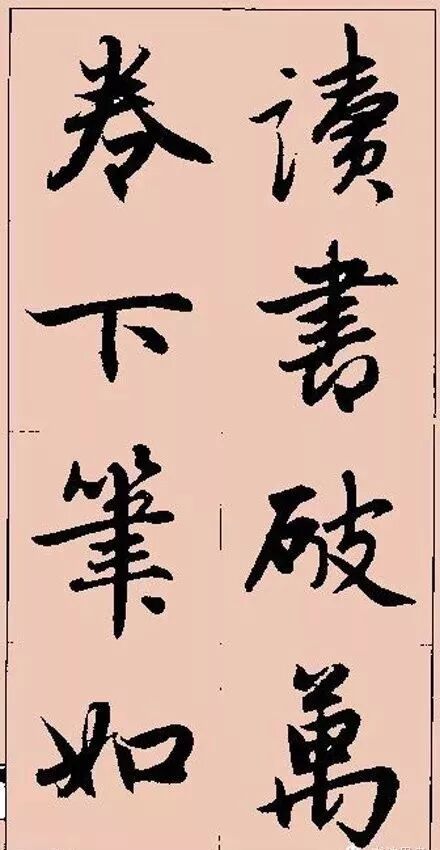 讀書破萬
卷下筆如